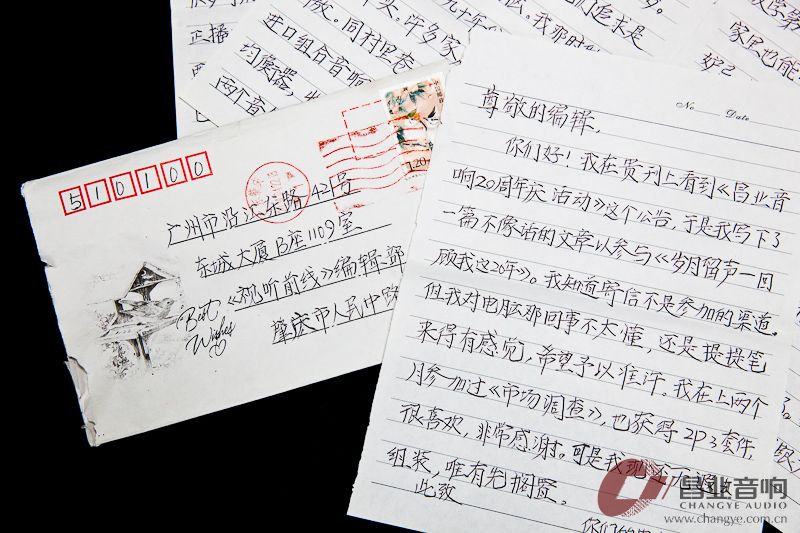 正播
进口组合音响
均衡器,
两个音
年头。许多家,
散。同村里巷
九十年
我那时
们追求是
家里也能
好2
510100
广州市沿江东路421号
东城大厦B座1109室
《视听前线》编辑部
肇庆市人民中路
Best
Wishes
1.20
No.
Date
尊敬的编辑,
你们好!我在贵刊上看到《昌业音
响20周年庆活动》这个公告,于是我写下了
一篇不像话的文章以参与《岁月留声一回
顾我这20年》。我知道寄信不是参加的渠道。
但我对电脑那回事不太懂,还是提提笔
来得有感觉,希望予以准许。我在上两个
月参加过《市场调查》,也获得2P3套件,
很喜欢,非常感谢。可是我现
组装,唯有先搁置。
此致
你们的
昌业音响
CHANGYE AUDIO
www.changye.com.cn